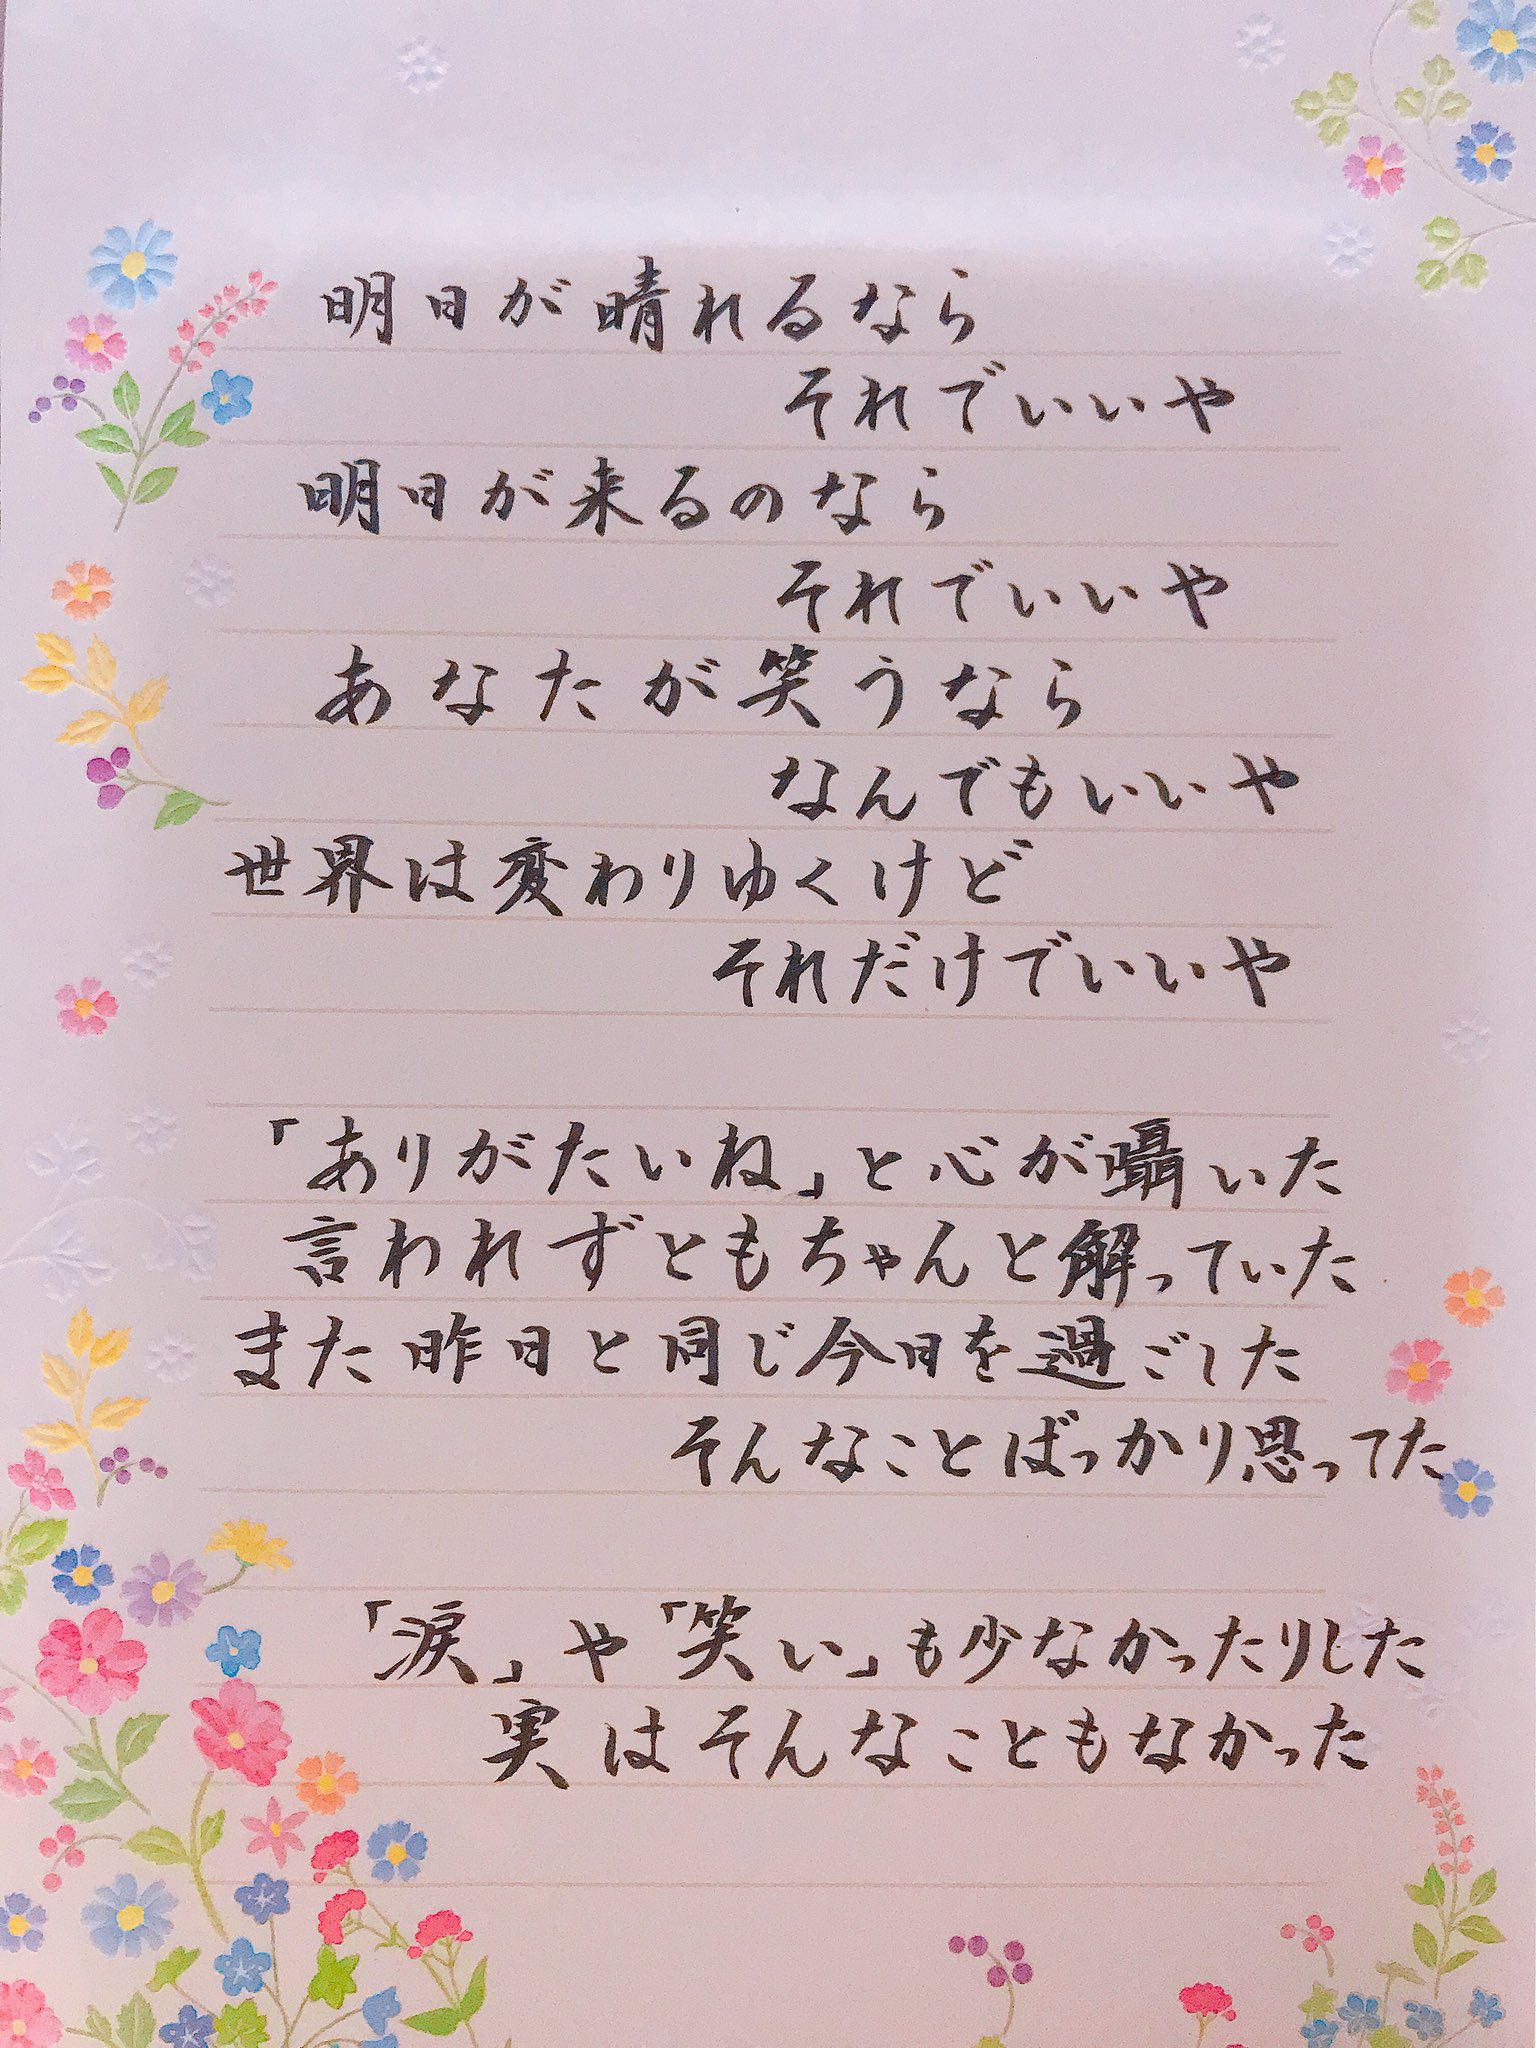 明日が晴れるなら
それでいいや
明日が来るのなら
それでいいや
あなたが笑うなら
なんでもいいや
世界は変わりゆくけど
それだけでいいや
「ありがたいね」と心が囁いた
言われずともちゃんと解っていた
また昨日と同じ今日を過ごした
そんなことばっかり思ってた
「涙」や「笑い」も少なかったりした
実はそんなこともなかった